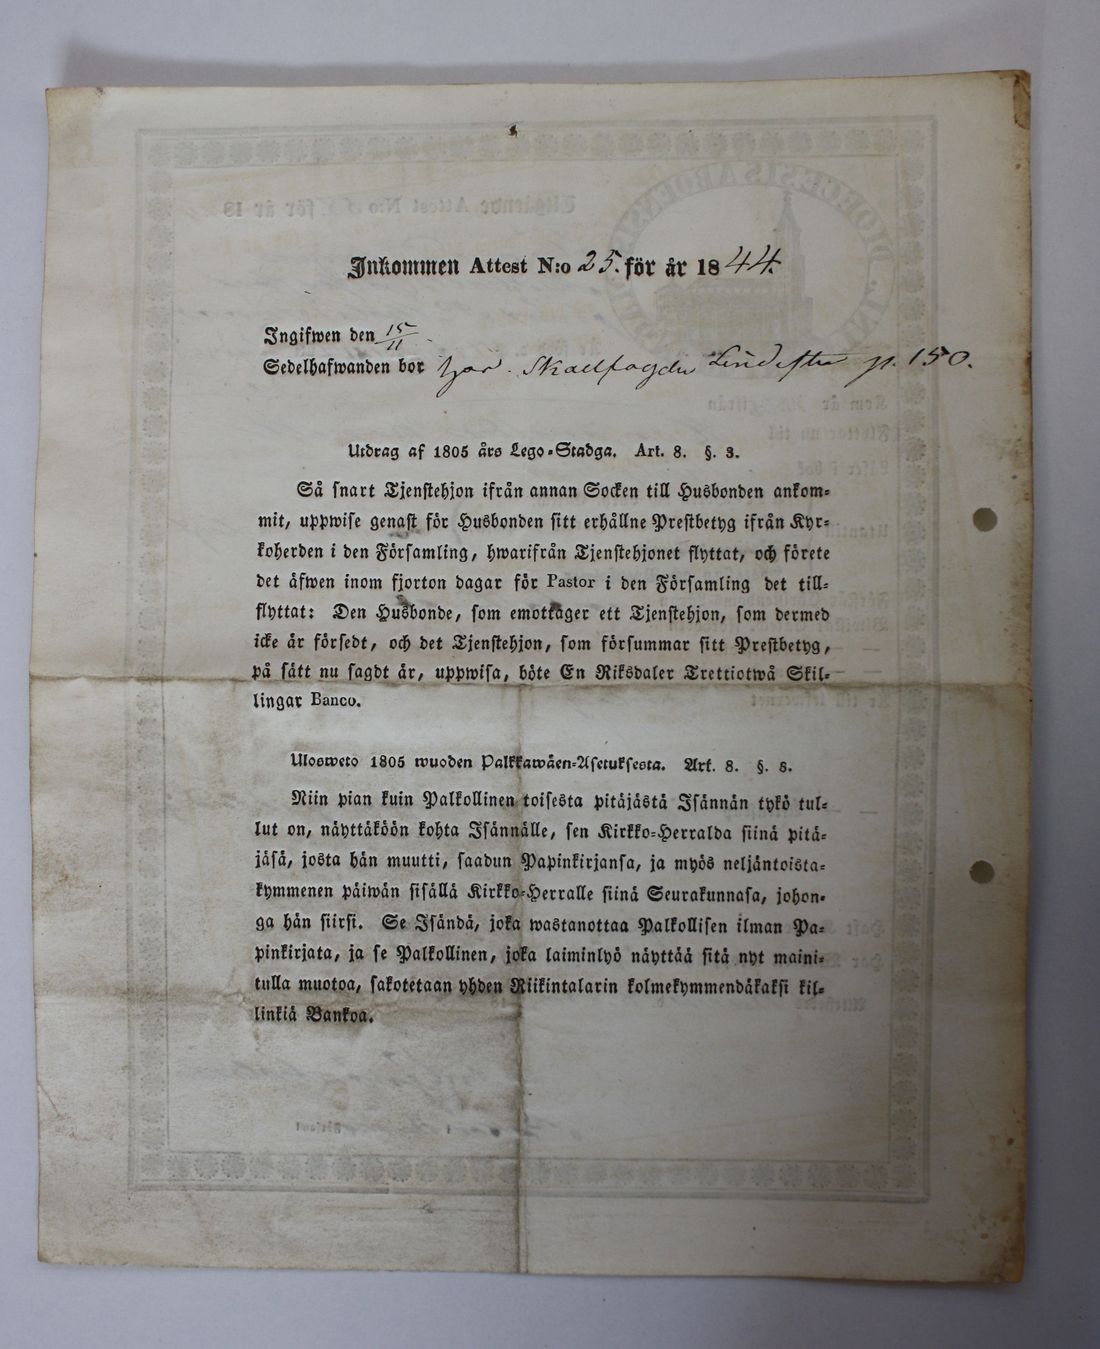 Inkommen Attest N:o 25. för år 1844.
Ingifwen den 15/11.
Sedelhafwanden bor hos Skallfogden p. 150.
Utdrag af 1805 års Lego-Stadga. Art. 8. §. 3.
Så snart Tjenstehjon ifrån annan Socken till Husbonden ankom-
mit, uppwise genast för Husbonden sitt erhållne Prestbetyg ifrån Kyr-
koherden i den Församling, hwarifrån Tjenstehjonet flyttat, och förete
det äfwen inom fjorton dagar för Pastor i den Församling det till-
flyttat: Den Husbonde, som emottager ett Tjenstehjon, som dermed
icke är försedt, och det Tjenstehjon, som försummar sitt Prestbetyg,
på sätt nu sagdt är, uppwisa, böte En Riksdaler Trettiotwå Skil-
lingar Banco.
Ulosweto 1805 wuoden Palkkawäen-Asetuksesta. Art. 8. §. 3.
Niin pian kuin Palkollinen toisesta pitäjästä Isännän tykö tul-
lut on, näyttäköön kohta Isännälle, sen Kirkko-Herralda siinä pitä-
jäsä, josta hän muutti, saadun Papinkirjansa, ja myös neljäntoista-
kymmenen päiwän sisällä Kirkko-Herralle siinä Seurakunnasa, johon-
ga hän siirsi. Se Isändä, joka wastanottaa Palkollisen ilman Pa-
pinkirjata, ja se Palkollinen, joka laiminlyö näyttää sitä nyt maini-
tulla muotoa, sakotetaan yhden Riikintalarin kolmekymmendäkaksi kil-
linkiä Bankoa.